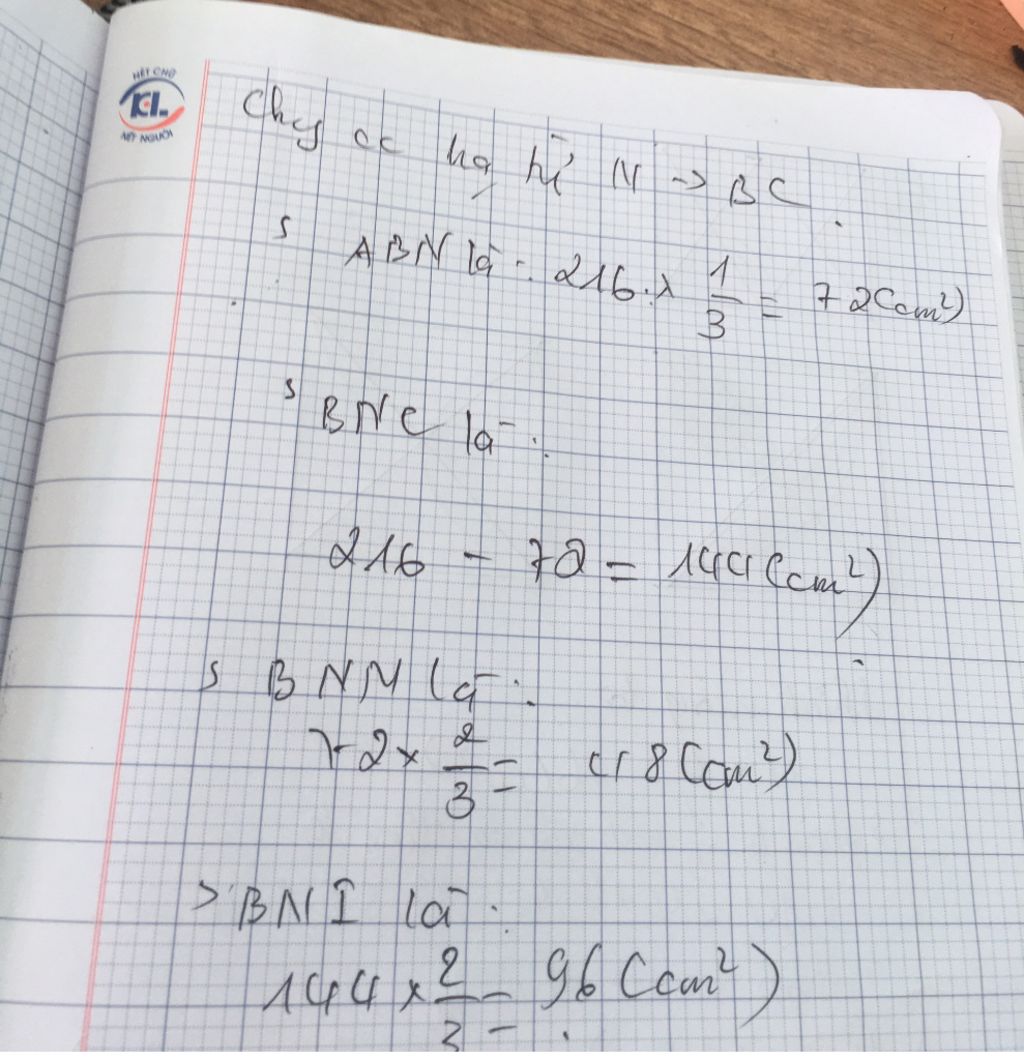 NÉT CHỮ
KL
NẾT NGƯỜI
Chug cc hạ từ N → BC
S ABN là : 216 x 1/3 = 72 (cm²)
S BNC là :
216 - 72 = 144 (cm²)
S BNM là :
72 x 2/3 = 48 (cm²)
S BNI là :
144 x 2/3 = 96 (cm²)